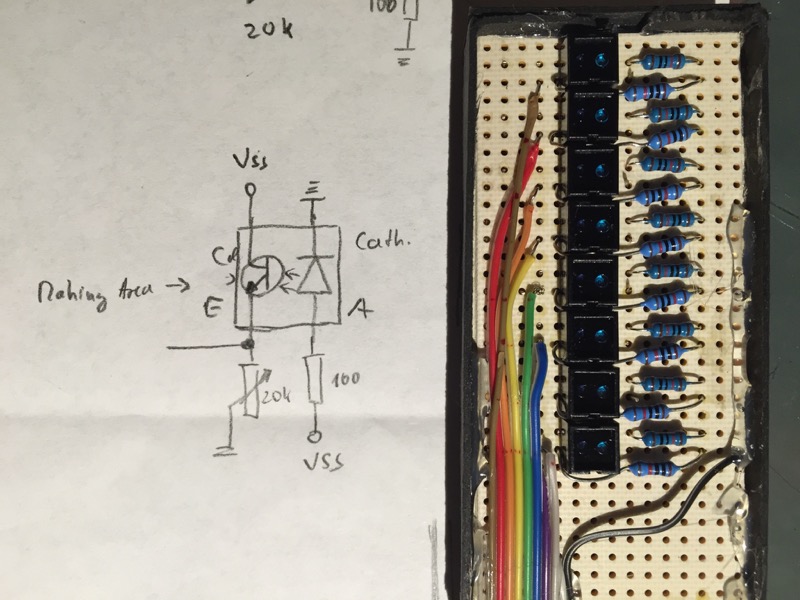 100
20k
Vss
Cath.
Col
Making Area →
E
A
20k
100
VSS